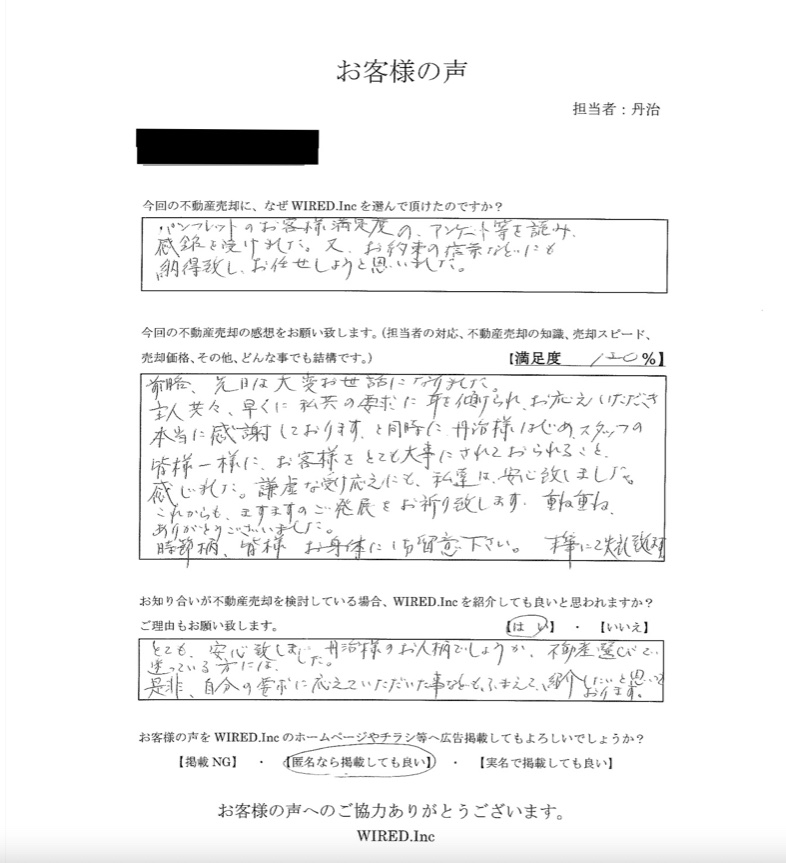 お客様の声
担当者：丹治
今回の不動産売却に、なぜWIRED.Incを選んで頂けたのですか？
パンフレットのお客様満足度の、アンケート等を読み、
感銘を受けました。又、お約束の信条などにも
納得致し、お任せしようと思いました。
今回の不動産売却の感想をお願い致します。（担当者の対応、不動産売却の知識、売却スピード、
売却価格、その他、どんな事でも結構です。） 【満足度 120 %】
前略、先日は大変お世話になりました。
主人共々、早くに私共の要求に耳を傾けられ、お応えいただき
本当に感謝しております。と同時に、丹治様はじめ、スタッフの
皆様一様に、お客様をとても大事にされておられること、
感じました。謙虚な受け応えにも、私達は、安心致しました。
これからも、ますますのご発展をお祈り致します。重ね重ね、
ありがとうございました。
時節柄、皆様 お身体にご留意下さい。 乱筆にて失礼致します
お知り合いが不動産売却を検討している場合、WIRED.Incを紹介しても良いと思われますか？
ご理由もお願い致します。 【はい】 ・ 【いいえ】
とても、安心致しました。丹治様のお人柄でしょうか、不動産選びで
迷っている方には、
是非、自分の要求に応えていただいた事なども、ふまえて、紹介したいと思っております。
お客様の声をWIRED.Incのホームページやチラシ等へ広告掲載してもよろしいでしょうか？
【掲載NG】 ・ 【匿名なら掲載しても良い】 ・ 【実名で掲載しても良い】
お客様の声へのご協力ありがとうございます。
WIRED.Inc